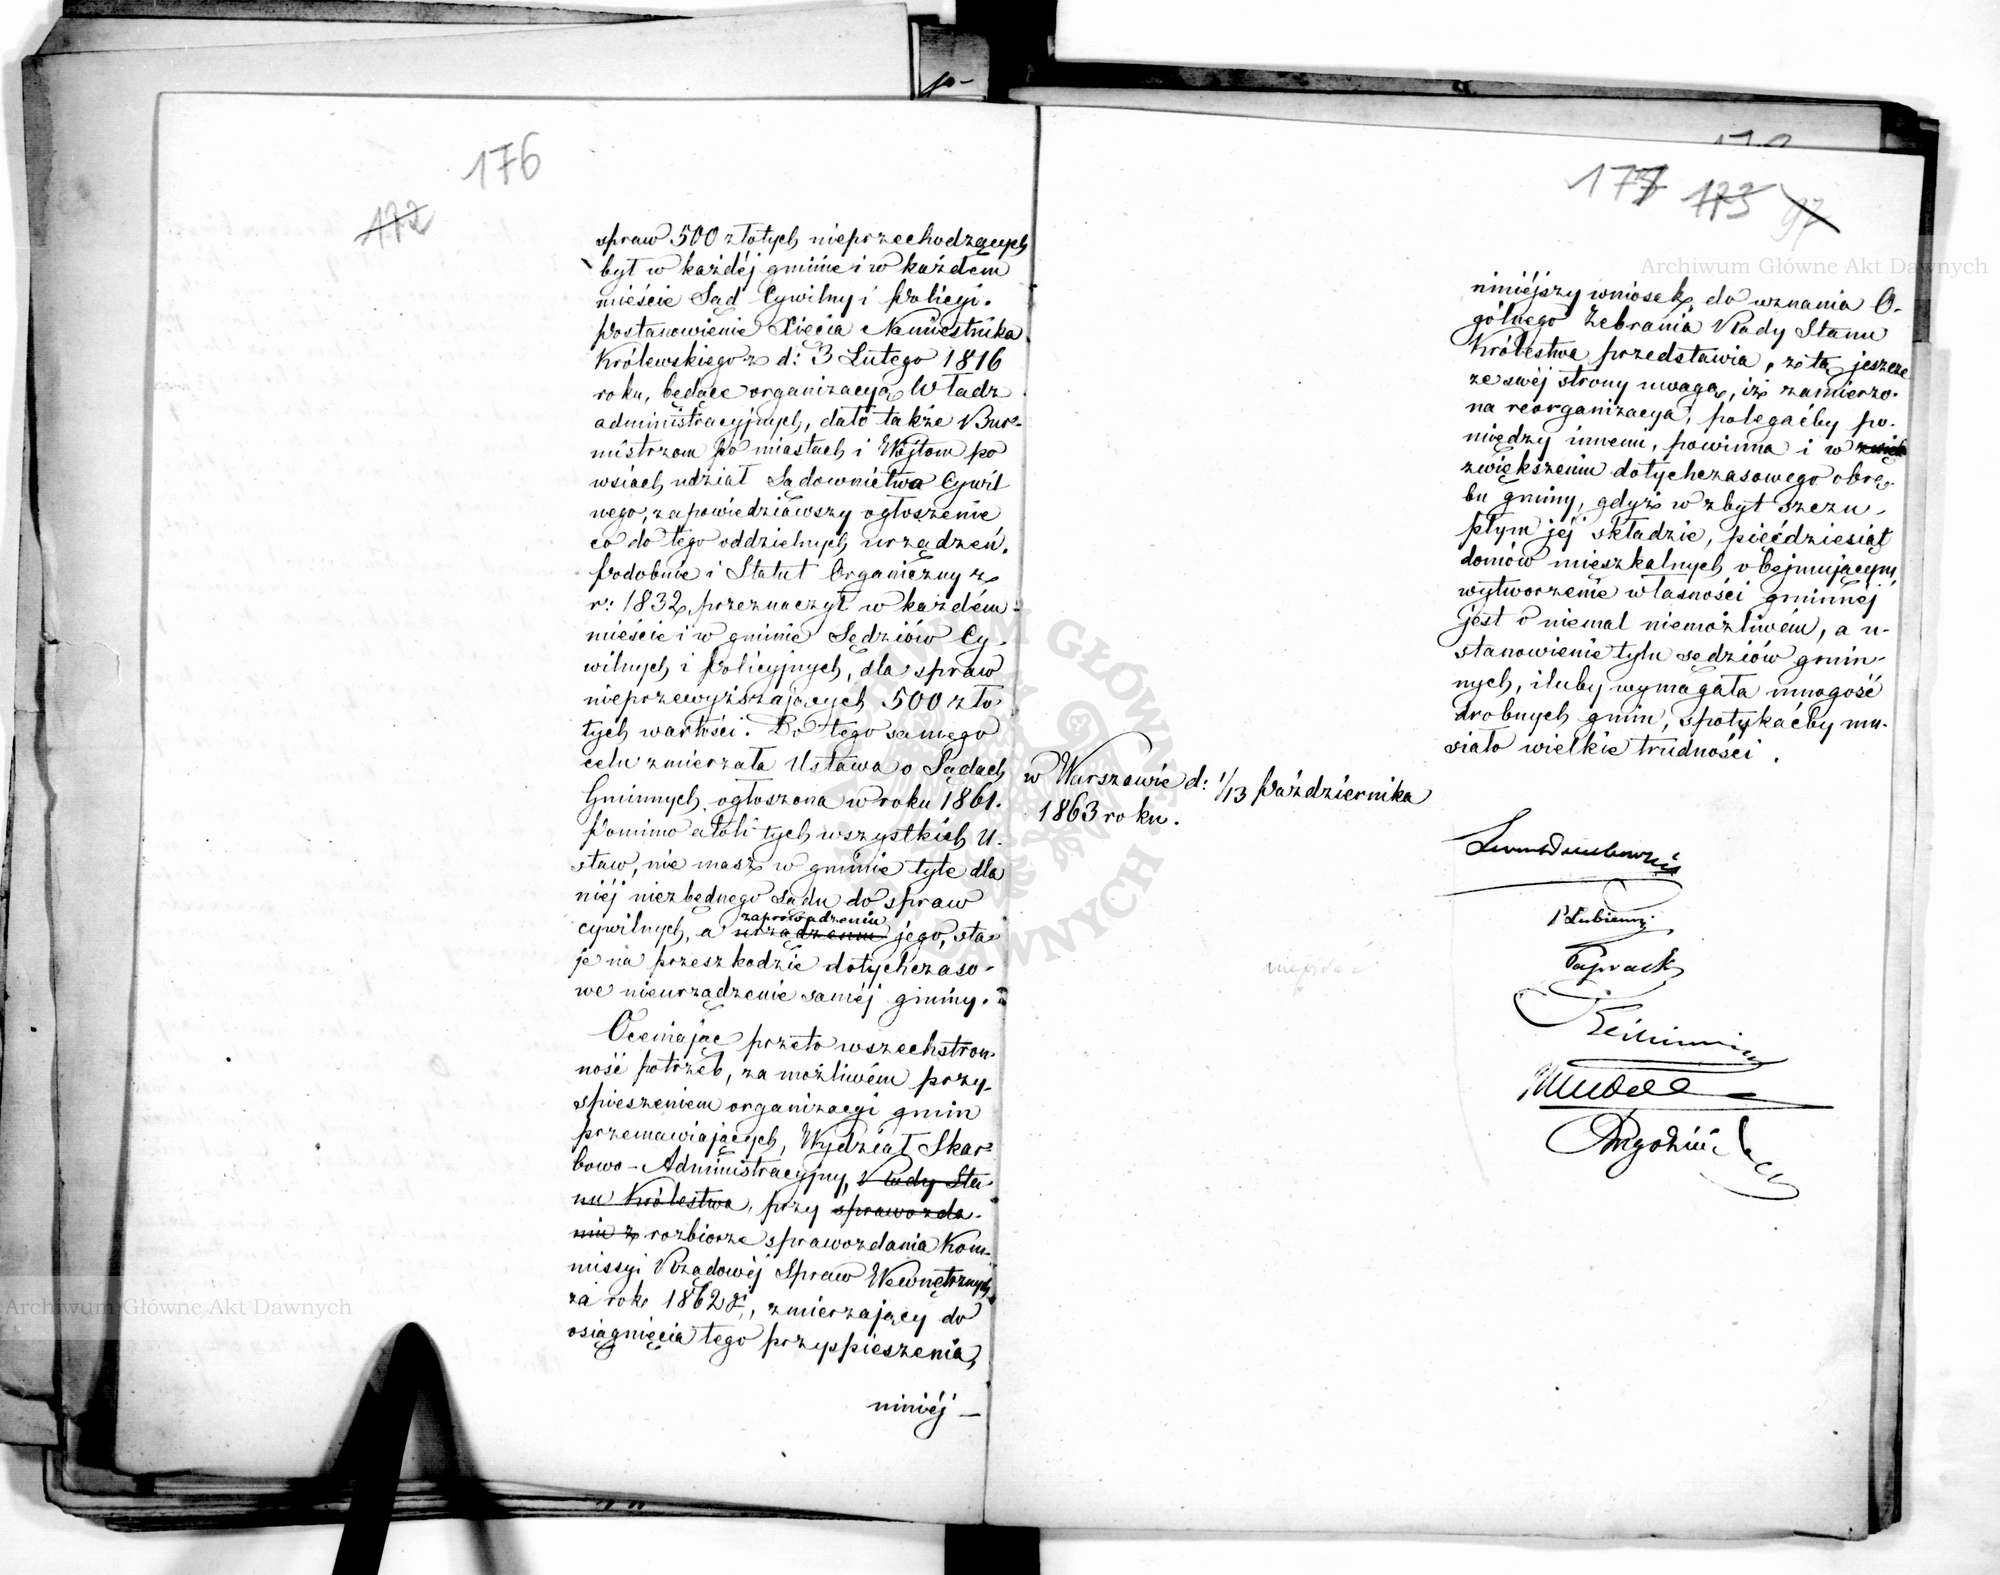 176
172
spraw 500 złotych nieprzechodzących
był w każdéj gminie i w każdem
mieście Sąd Cywilny i Policyi.
Postanowienie Xięcia Namiestnika
Królewskiego z d: 3 Lutego 1816
roku, będące organizacyą Władz
administracyjnych, dało także Bur-
mistrzom po miastach i Wójtom po
wsiach udział Sądownictwa Cywil
nego, zapowiedziawszy ogłoszenie
co do tego oddzielnych urządzeń.
Podobnie i Statut Organiczny z
r: 1832 przeznaczył w każdém
mieście i w gminie Sędziów Cy-
wilnych i Policyjnych, dla spraw
nieprzewyższających 500 zło-
tych wartości. Do tego samego
celu zmierzała Ustawa o Sądach
Gminnych, ogłoszona w roku 1861.
Pomimo atoli tych wszystkich U-
staw, nie masz w gminie tyle dla
niéj niezbędnego Sądu do spraw
zaprowadzeniu
cywilnych, a urządzeniu jego, sta-
je na przeszkodzie dotychczaso-
we nieurządzenie saméj gminy.
Oceniając przeto wszechstron-
ność potrzeb, za możliwém przy-
spieszeniem organizacyi gmin
przemawiających, Wydział Skar-
bowo-Administracyjny, Rady Sta-
nu Królestwa, przy sprawozda-
niu z rozbiorze sprawozdania Kom-
missyi Rządowéj Spraw Wewnętrznych
za rok 1862 r., zmierzający do
osiągnięcia tego przyspieszenia,
niniéj-
177 173 97
niniéjszy wniosek, do uznania O-
gólnego Zebrania Rady Stanu
Królestwa przedstawia, z tą jeszcze
ze swéj strony uwagą, iż zamierzo-
na reorganizacya, polegaćby po-
między innemi, powinna i w
zwiększeniu dotychczasowego obrę-
bu gminy, gdyż w zbyt szczu-
płym jéj składzie, pięćdziesiąt
domów mieszkalnych obejmującym,
wytworzenie własności gminnéj
jest o niemal niemożliwém, a u-
stanowienie tylu sędziów gmin-
nych, iluby wymagała mnogość
drobnych gmin, spotykaćby mu-
siało wielkie trudności.
w Warszawie d: 1/13 Października
1863 roku.
Archiwum Główne Akt Dawnych
Archiwum Główne Akt Dawnych
ARCHIWUM GŁÓWNE AKT DAWNYCH